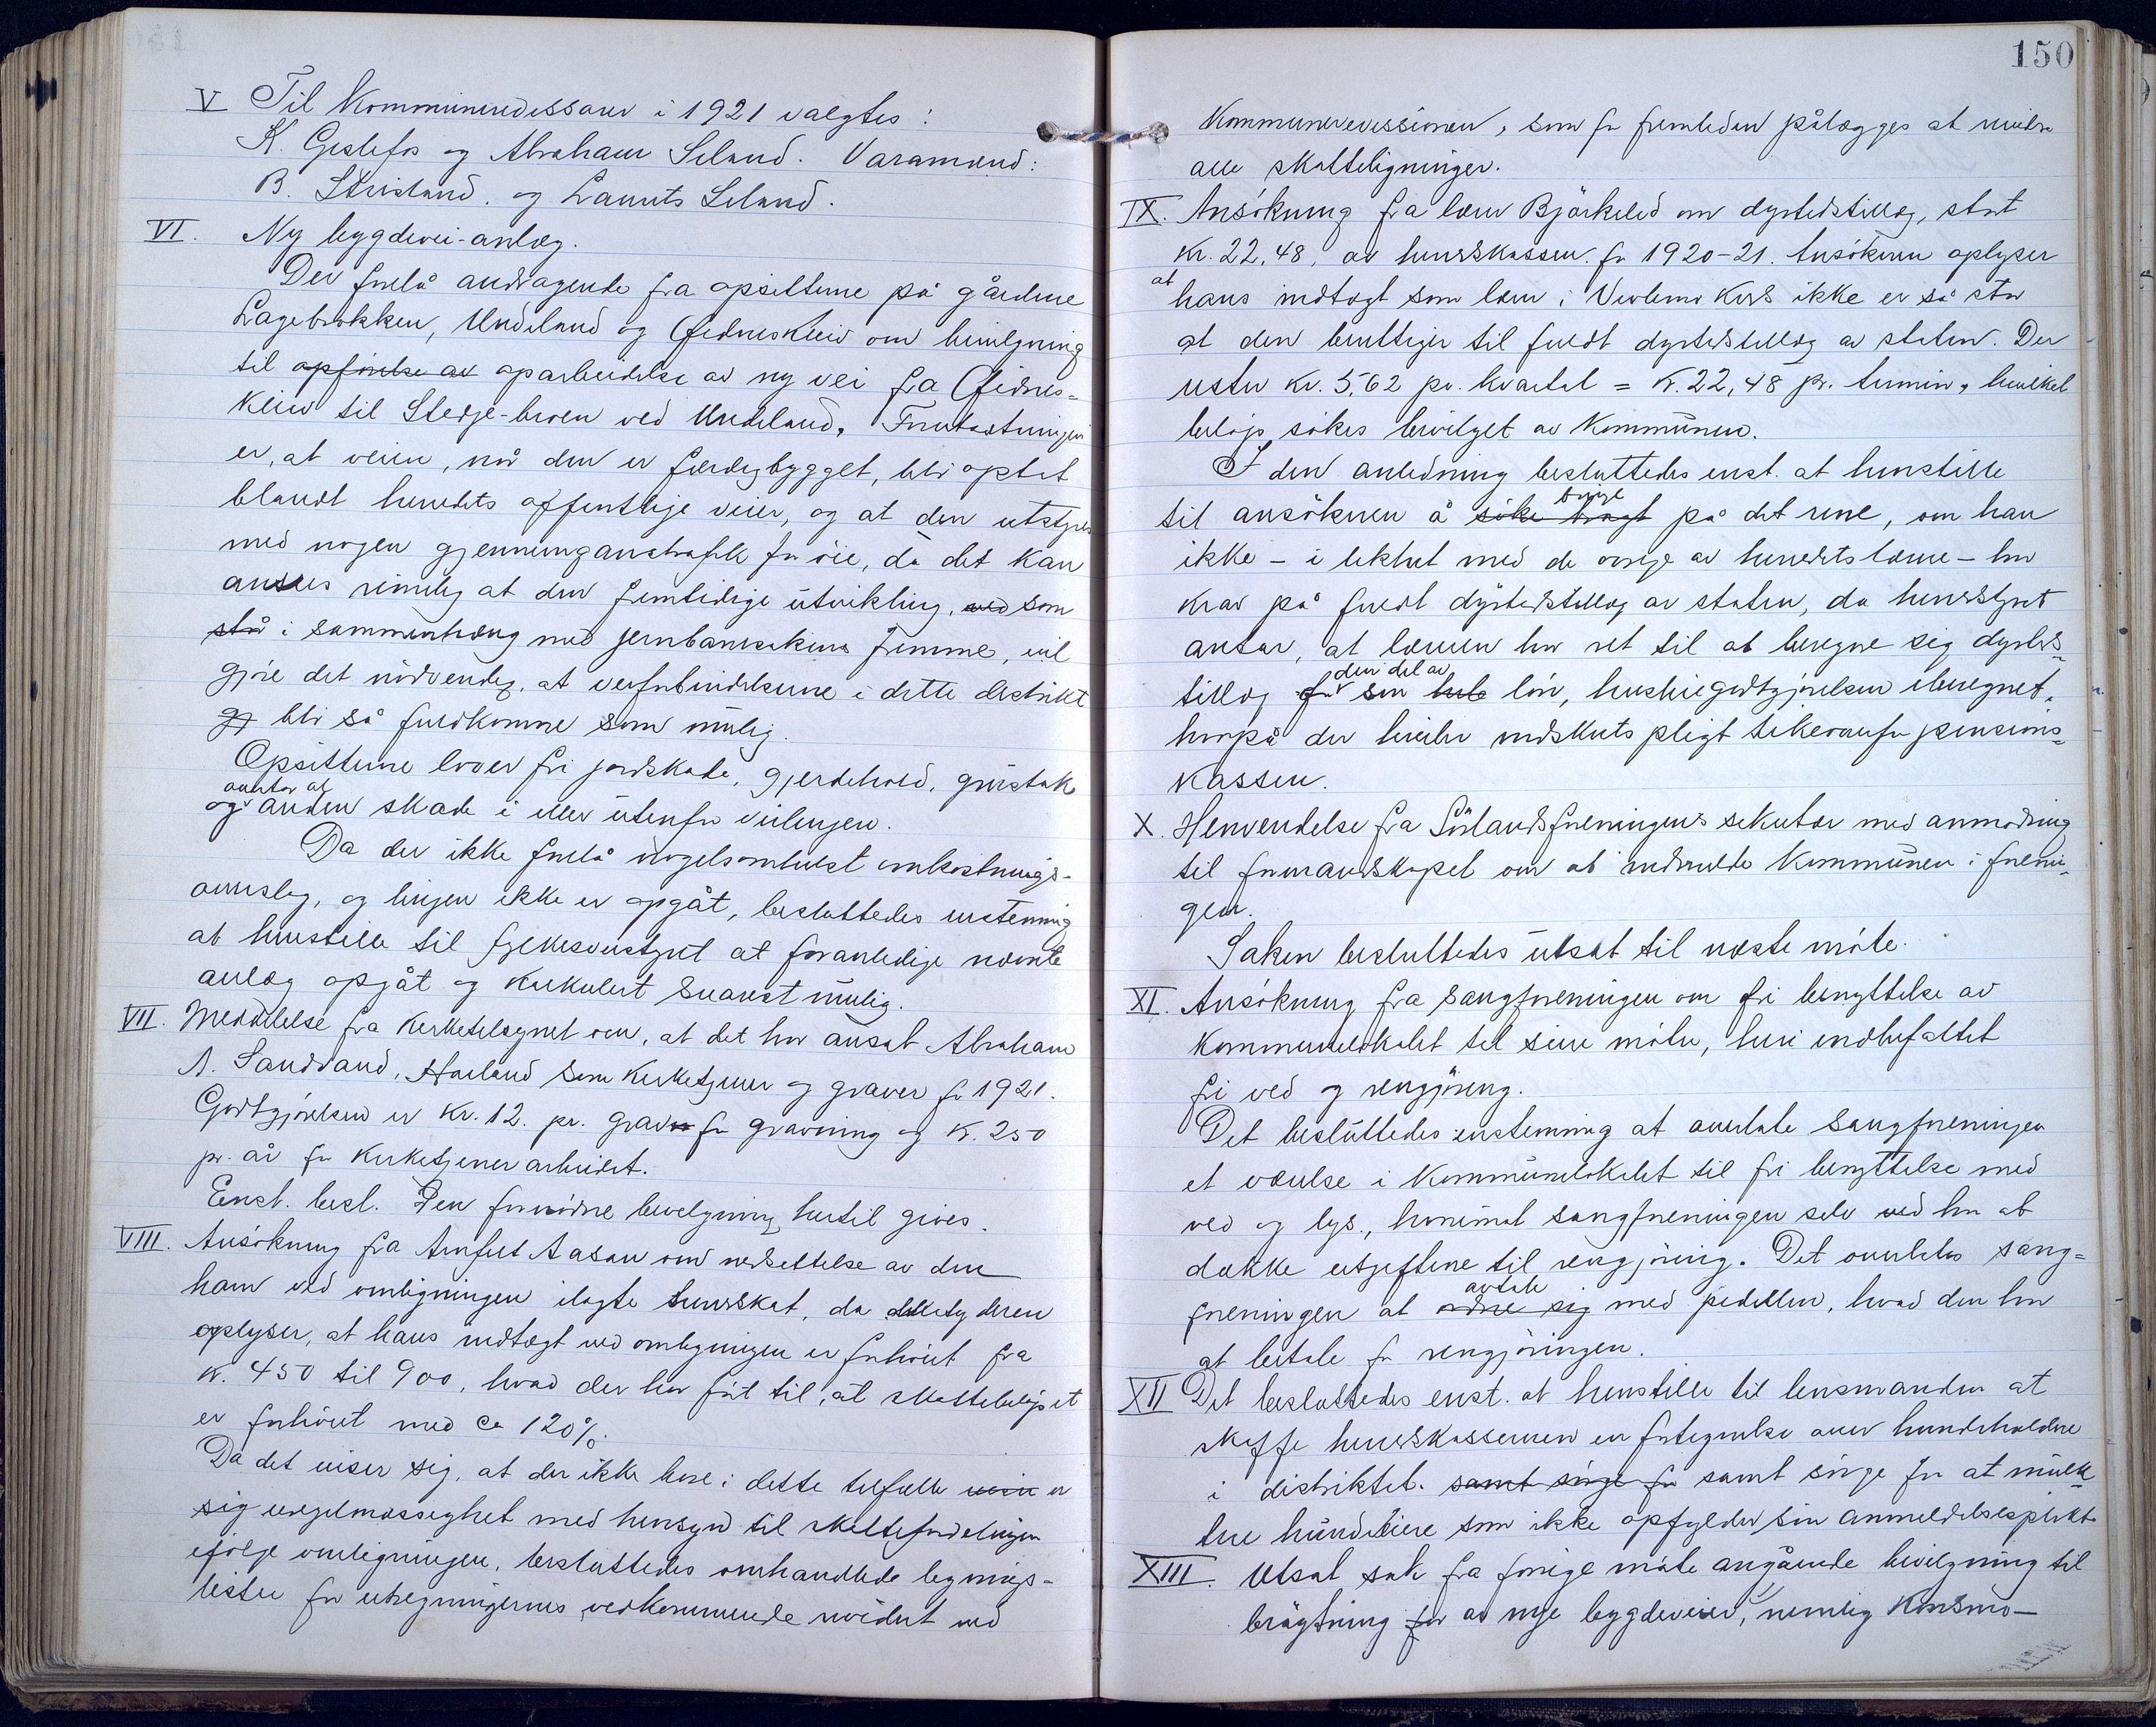 V Til Kommunerevissorer i 1921 valgtes:
K. Geslefos og Abraham Seland. Varamænd:
B. Stusland. og Laurits Seland.
VI. Ny bygdevei-anlæg.
Der forelå andragende fra opsitterne på gårdene
Lagebrokken, Undeland og Gidneskleiv om bevilgning
til opførelse av oparbeidelse av ny vei fra Gidnes-
kleiv til Stedje-broen ved Undeland, Forutsætningen
er, at veien, når den er færdigbygget, blir optat
blandt herredets offentlige veier, og at den utstyres
med nogen gjennemgangstrafik for øie, da det kan
ansees rimelig at den fremtidige utvikling, ved som
stå i sammenhæng med jernbanesakens fremme, vil
gjøre det nødvendig, at veiforbindelserne i dette distrikt
gj blir så fuldkomne som mulig.
Opsitterne lover fri jordskade, gjerdehold, grustak
og anden skade i eller utenfor veilinjen.
Da der ikke forelå nogetsomhelst omkostnings-
overslag, og linjen ikke er opgåt, besluttedes enstemmig
at henstille til fylkesveistyret at foranledige nævnte
anlæg opgåt og kalkulert snarest mulig.
VII. Meddelelse fra Kirketilsynet om, at det har ansat Abraham
A. Sandvand, Høiland som kirketjener og graver for 1921.
Godtgjørelsen er Kr. 12. pr. grav for gravning og K. 250
pr. år for kirketjenerarbeidet.
Enst. besl. Den fornødne bevilgning hertil gives.
VIII. Ansøkning fra Arnfelt Aasan om nedsettelse av den
ham ved omligningen ilagte herredskat, da skatteyderen
oplyser, at hans indtægt ved omligningen er forhøiet fra
K. 450 til 900, hvad der har ført til, at skattebeløpet
er forhøiet med ca 120%.
Da det viser sig, at der ikke bare i dette tilfælde viser er
sig uregelmæssighet med hensyn til skattefordelingen
ifølge omligningen, besluttedes omhandlede lignings-
lister for utregningernes vedkommende revidert ved
150
Kommunerevissionen, som for fremtiden pålægges at revidere
alle skatteligninger.
IX. Ansøkning fra lærer Bjørkeled om dyrtidstillæg, stort
Kr. 22,48, av herredskassen for 1920-21. Ansøkeren oplyser
at
hans indtægt som lærer i Vivlemo kres ikke er så stor
at den berettiger til fuldt dyrtidstillæg av staten. Der
rester Kr. 5,62 pr. kvartal = K. 22,48 pr. termin, hvilket
beløp søkes bevilget av Kommunen.
I den anledning besluttedes enst. at henstille
til ansøkeren å søke bragt på det rene, om han
ikke - i likhet med de øvrige av herredets lærere - har
krav på fuldt dyrtidstillæg av staten, da herredstyret
antar, at læreren har ret til at beregne sig dyrtids-
den del av
tillæg for sin hele løn, husleiegodtgjørelsen iberegnet,
hvorpå der hviler indskuts pligt likeoverfor pensions-
kassen.
X. Henvendelse fra Sørlandsforeningens sekretær med anmodning
til formandskapet om at indmelde Kommunen i forenin-
gen.
Saken besluttedes utsat til næste møte.
XI. Ansøkning fra Sangforeningen om fri benyttelse av
kommunelokalet til sine møter, heri indbefattet
fri ved og rengjøring.
Det besluttedes enstemmig at overlate Sangforeningen
et værelse i Kommunelokalet til fri benyttelse med
ved og lys., hvorimot sangforeningen selv ved har at
dække utgiftene til rengjøring. Det overlates sang-
avtale
foreningen at ordne sig med pedellen, hvad den har
at betale for rengjøringen.
XII Det besluttedes enst. at henstille til lensmanden at
skaffe herredskassereren en fortegnelse over hundeholdere
i distriktet. samt sørge for samt sørge for at mulk-
tere hundeeiere som ikke opfylder sin anmeldelsesplikt.
XIII. Utsat sak fra forrige møte angående bevilgning til
brøytning for av nye bygdeveier, nemlig Konsmo-